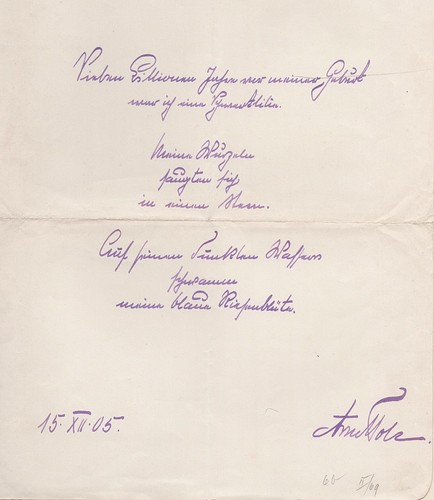 Sieben Billionen Jahre vor meiner Geburt
war ich eine Schwertlilie.
Meine Wurzeln
saugten sich
in einen Stern.
Auf seinen dunklen Wassern
schwamm
meine blaue Riesenblüte.
15. XII. 05.
Arno Holz